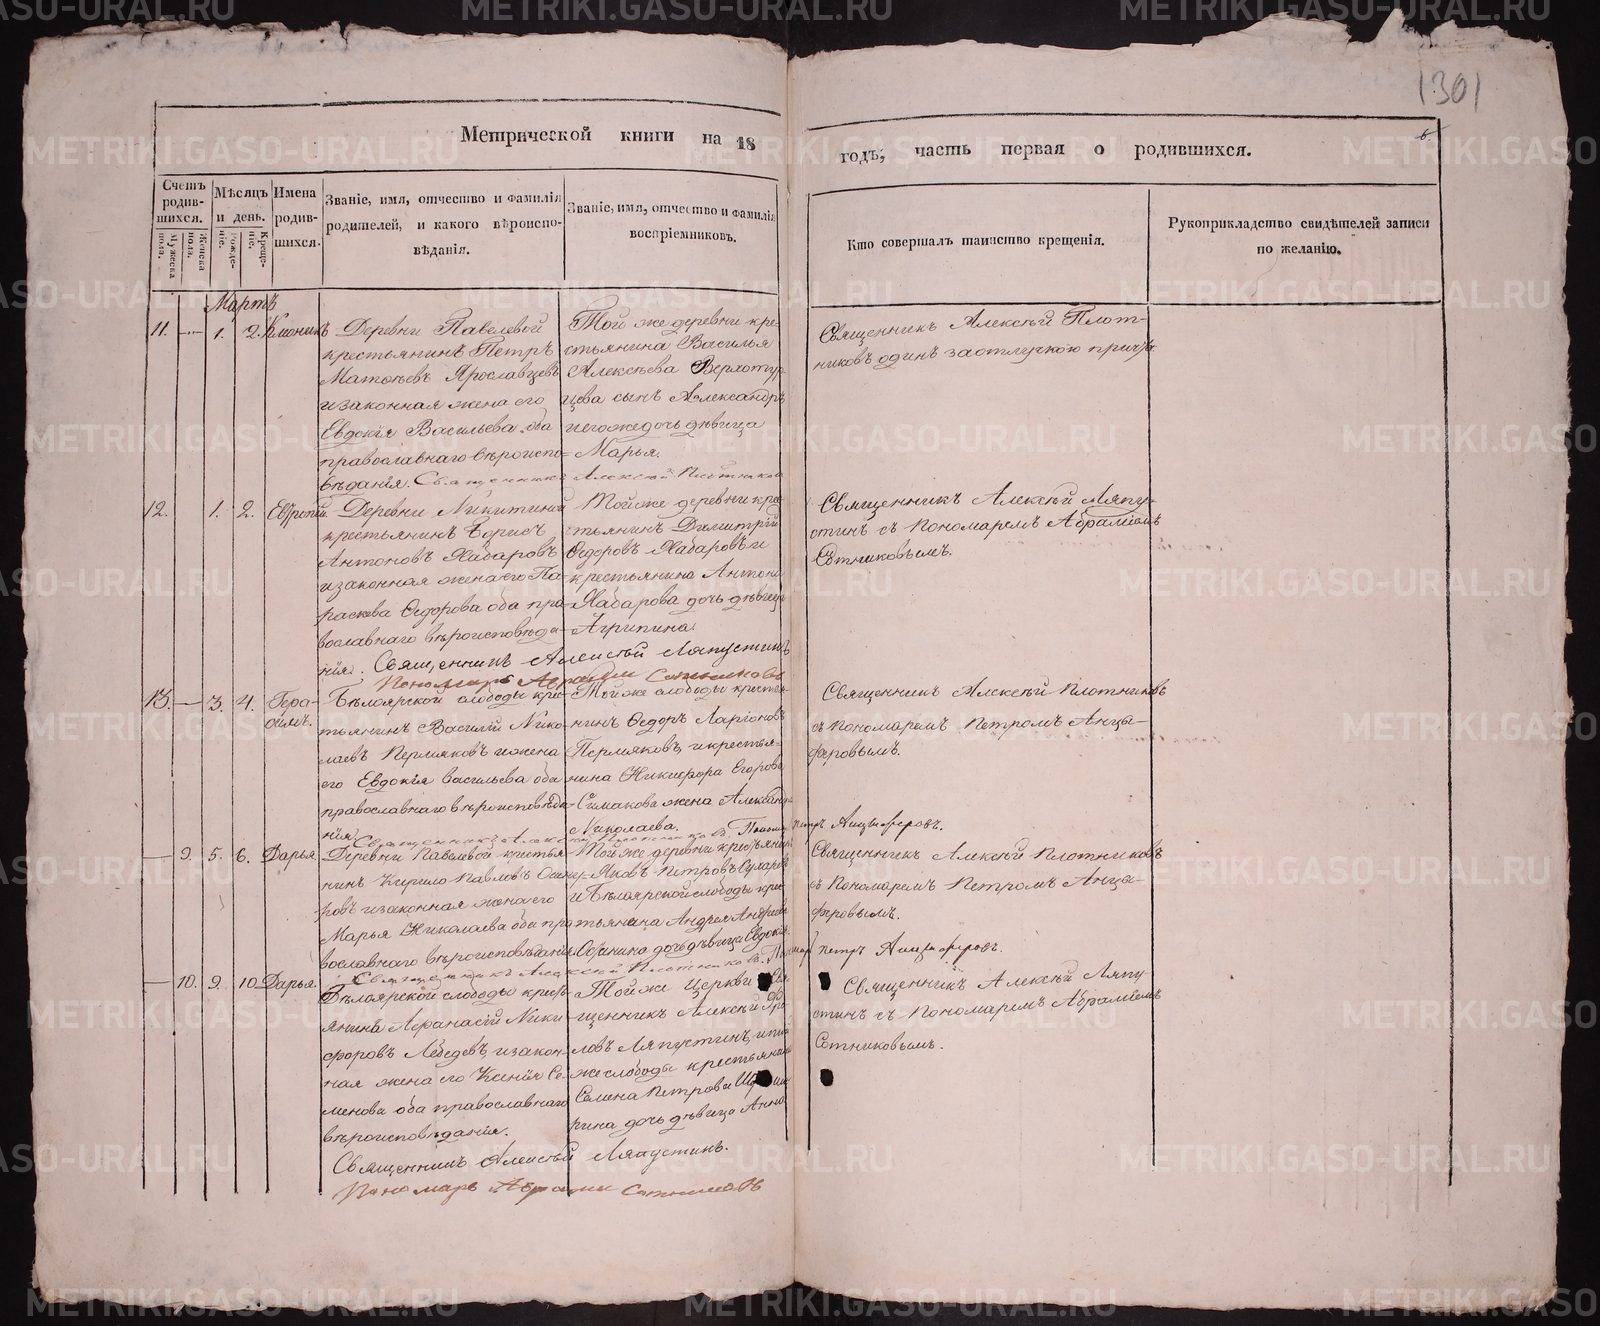 1301
Метрической книги на 18
годъ, часть первая о родившихся.
Счетъ родив-шихся.
Мужеска пола.
Женска пола.
Мѣсяцъ и день.
Рожде-нiе.
Креще-нiе.
Имена родив-шихся.
Званiе, имя, отчество и фамилiя родителей, и какого вѣроиспо-вѣданiя.
Званiе, имя, отчество и фамилiя воспрiемниковъ.
Кто совершалъ таинство крещенiя.
Рукоприкладство свидѣтелей записи по желанiю.
Мартъ
11. — 1. 2.
Деревни Павлевой
крестьянинъ Петръ
Матѳеевъ Ярославцевъ
и законная жена его
Евдокiя Васильева оба
православнаго вѣроиспо-
вѣданiя. Священникъ Алексѣй Плотниковъ
Той же деревни кре-
стьянина Василья
Алексѣева Верхотур-
цева сынъ Александръ
и его же дочь дѣвица
Марья.
Священникъ Алексѣй Плот-
никовъ одинъ за отлучкою причта
12. 1. 2.
Деревни Никитиной
крестьянинъ Борисъ
Антоновъ Хабаровъ
и законная жена его Па-
раскева Ѳедорова оба пра-
вославнаго вѣроисповѣда-
нiя. Священникъ Алексѣй Ляпустинъ
Пономарь Абрамiй Сотниковъ
Той же деревни кре-
стьянинъ Димитрiй
Ѳедоровъ Хабаровъ и
крестьянина Антона
Хабарова дочь дѣвица
Агрипина.
Священникъ Алексѣй Ляпу-
стинъ съ Пономаремъ Абрамiемъ
Сотниковымъ.
13. — 3. 4. Гера-
симъ.
Бѣлоярской слободы кре-
стьянинъ Василiй Нико-
лаевъ Пермяковъ и жена
его Евдокiя Васильева оба
православнаго вѣроисповѣда-
нiя. Священникъ Алексѣй Плотниковъ. Пономарь Петръ Анцыферовъ.
Той же слободы крестья-
нинъ Ѳедоръ Ларiоновъ
Пермяковъ, и крестья-
нина Никифора Егорова
Симакова жена Александра
Николаева.
Священникъ Алексѣй Плотниковъ
съ Пономаремъ Петромъ Анцы-
феровымъ.
— 9. 5. 6. Дарья.
Деревни Павлевой крестья-
нинъ Кирило Павловъ
и законная жена его
Марья Николаева оба пра-
вославнаго вѣроисповѣданiя
Священникъ Алексѣй Плотниковъ. Пономарь Петръ Анцыферовъ.
Той же деревни крестьянинъ
Яковъ Петровъ Сухаревъ
и Бѣлоярской слободы кре-
стьянина Андрея
дочь дѣвица Евдокiя.
Священникъ Алексѣй Плотниковъ
съ Пономаремъ Петромъ Анцы-
феровымъ.
— 10. 9. 10. Дарья.
Бѣлоярской слободы кресть-
янинъ Афанасiй Ники-
форовъ Лебедевъ, и закон-
ная жена его Ксенiя Се-
менова оба православнаго
вѣроисповѣданiя.
Священникъ Алексѣй Ляпустинъ.
Пономарь Абрамiй Сотниковъ
Той же Церкви Свя-
щенникъ Алексѣй
Ляпустинъ, и той
же слободы крестьянина
Семена Петрова
дочь дѣвица Анна
Священникъ Алексѣй Ляпу-
стинъ съ Пономаремъ Абрамiемъ
Сотниковымъ.
METRIKI.GASO-URAL.RU